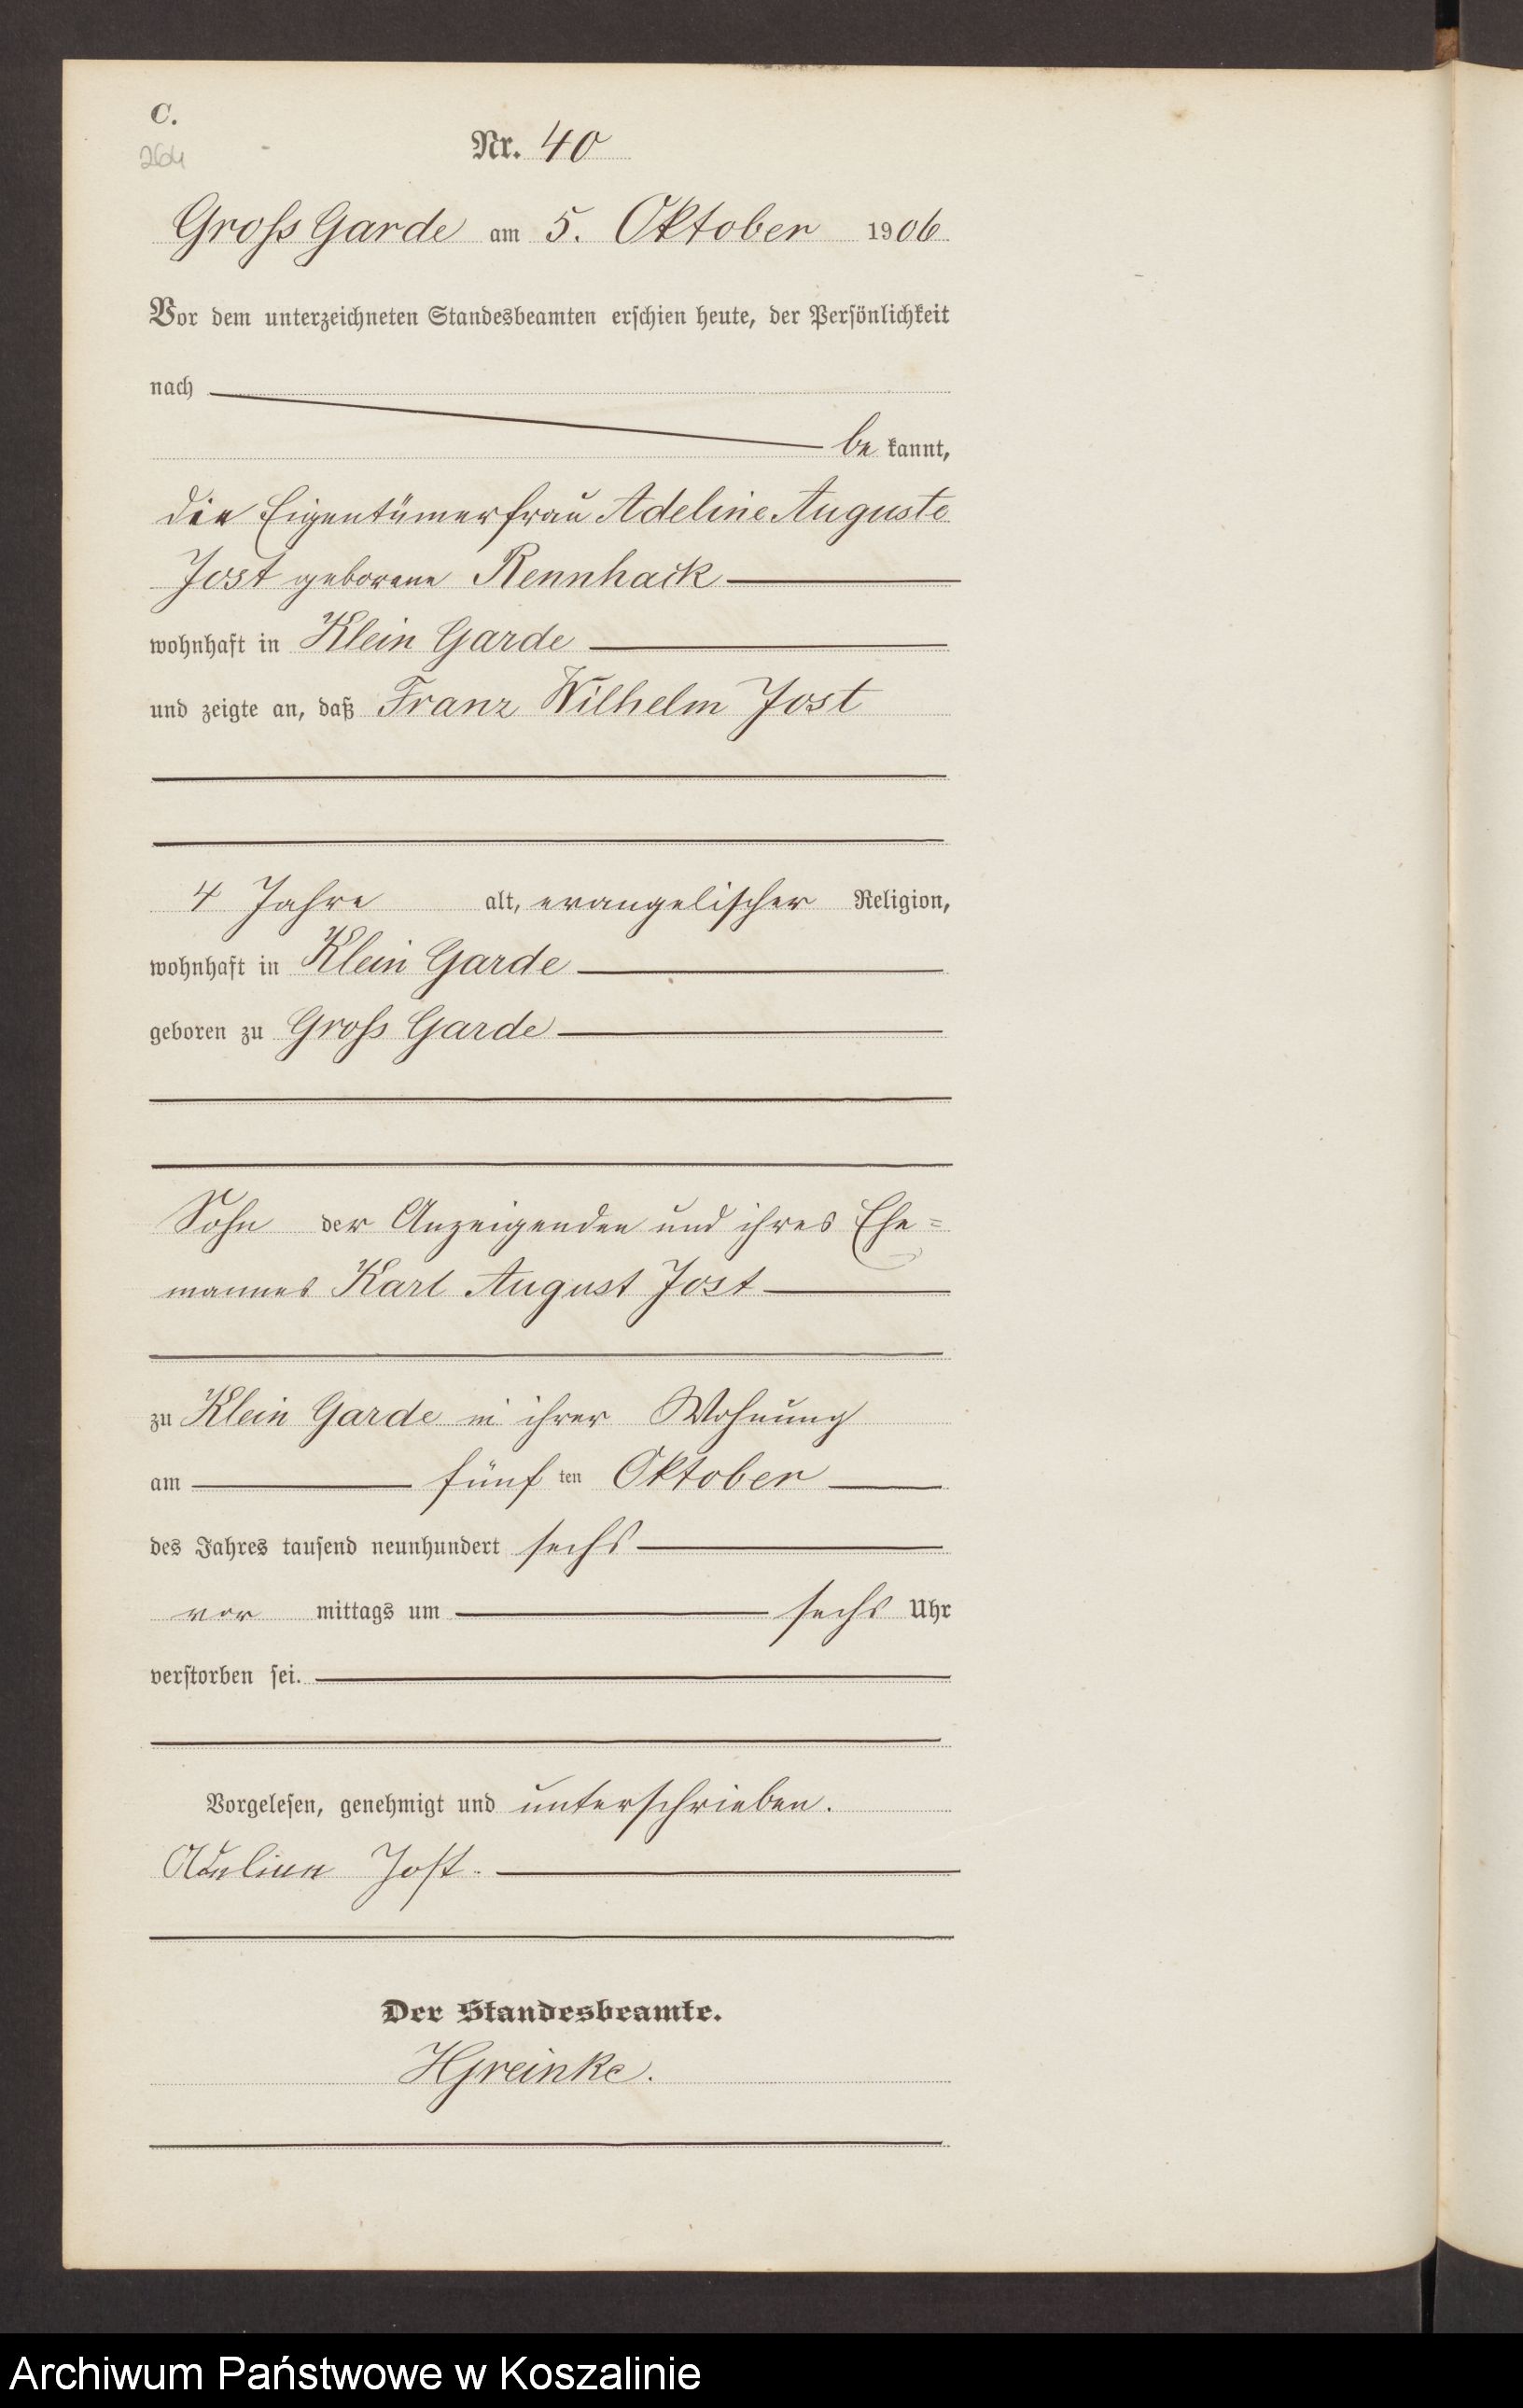 C.
264
Nr. 40
Gross Garde am 5. Oktober 1906
Vor dem unterzeichneten Standesbeamten erschien heute, der Persönlichkeit
nach
be kannt,
die Eigentümerfrau Adeline Auguste
Jost geborene Rennhack
wohnhaft in Klein Garde
und zeigte an, daß Franz Wilhelm Jost
4 Jahre alt, evangelischer Religion,
wohnhaft in Klein Garde
geboren zu Gross Garde
Sohn der Anzeigenden und ihres Ehe=
mannes Karl August Jost
zu Klein Garde in ihrer Wohnung
am fünf ten Oktober
des Jahres tausend neunhundert sechs
vor mittags um sechs Uhr
verstorben sei.
Vorgelesen, genehmigt und unterschrieben.
Adeline Jost.
Der Standesbeamte.
HGreinke.
Archiwum Państwowe w Koszalinie